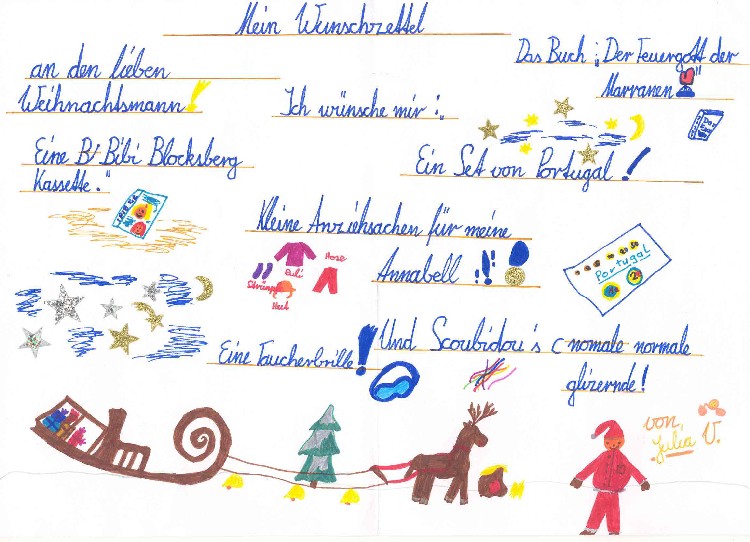 Mein Wunschzettel
an den lieben
Weihnachtsmann!
Ich wünsche mir :
Das Buch „Der Feuergott der
Marranen"
Eine B Bibi Blocksberg
Kassette."
Ein Set von Portugal!
Kleine Anziehsachen für meine
Annabell !!
Puli
Hose
Strümpfe
Hut
Portugal
2
Eine Taucherbrille!
Und Scoubidou's ( nomale normale
glizernde!
von
Julia V.